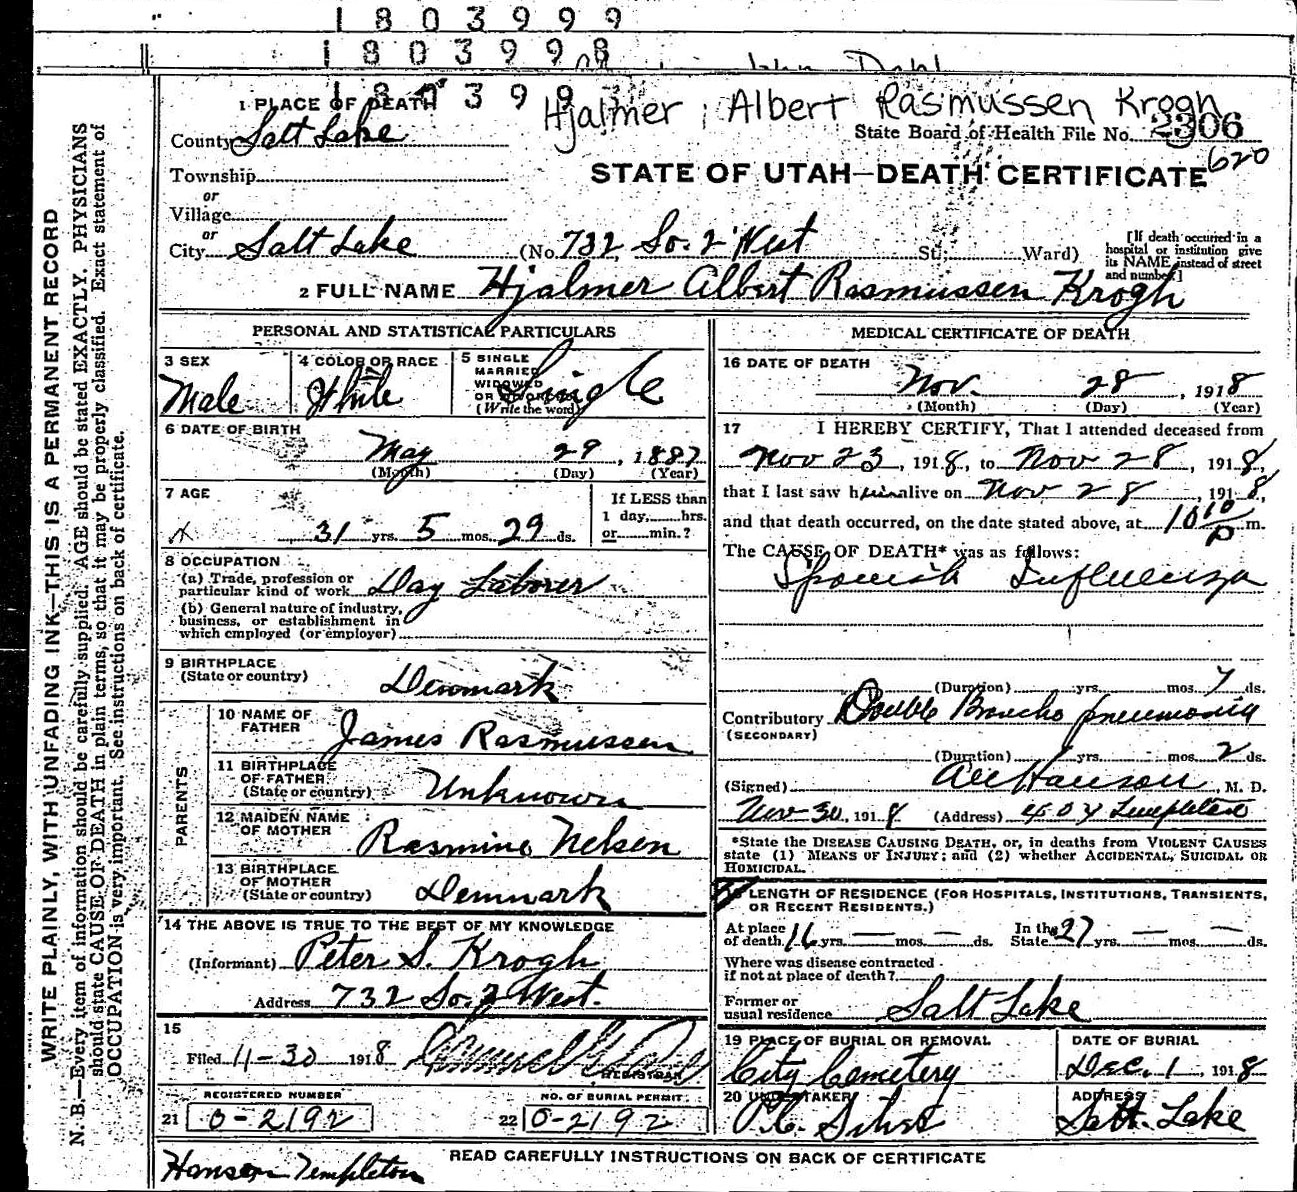 1803999
1803998
John Dahl
180399
Hjalmer Albert Rasmussen Krogh
1 PLACE OF DEATH
County Salt Lake
State Board of Health File No. 2306
620
Township
or
Village
or
City Salt Lake (No. 732 So. 2 West St; Ward)
STATE OF UTAH—DEATH CERTIFICATE
[If death occurred in a
hospital or institution give
its NAME instead of street
and number.]
2 FULL NAME Hjalmer Albert Rasmussen Krogh
PERSONAL AND STATISTICAL PARTICULARS
3 SEX
Male
4 COLOR OR RACE
White
5 SINGLE
MARRIED
WIDOWED
OR DIVORCED
(Write the word)
Single
6 DATE OF BIRTH
May 29, 1887
(Month) (Day) (Year)
7 AGE
31 yrs. 5 mos. 29 ds.
If LESS than
1 day, hrs.
or min.?
8 OCCUPATION
(a) Trade, profession or
particular kind of work Day Laborer
(b) General nature of industry,
business, or establishment in
which employed (or employer)
9 BIRTHPLACE
(State or country) Denmark
PARENTS
10 NAME OF
FATHER James Rasmussen
11 BIRTHPLACE
OF FATHER
(State or country) Unknown
12 MAIDEN NAME
OF MOTHER Rasmine Nelsen
13 BIRTHPLACE
OF MOTHER
(State or country) Denmark
14 THE ABOVE IS TRUE TO THE BEST OF MY KNOWLEDGE
(Informant) Peter S. Krogh
Address 732 So. 2 West.
15
Filed 11-30 1918
REGISTRAR
REGISTERED NUMBER
21 0-2192
NO. OF BURIAL PERMIT
22 0-2192
MEDICAL CERTIFICATE OF DEATH
16 DATE OF DEATH
Nov. 28, 1918
(Month) (Day) (Year)
17 I HEREBY CERTIFY, That I attended deceased from
Nov 23, 1918, to Nov 28, 1918,
that I last saw him alive on Nov 28, 1918,
and that death occurred, on the date stated above, at 10 10 P m.
The CAUSE OF DEATH* was as follows:
Spanish Influenza
(Duration) yrs. mos. 7 ds.
Contributory Double Broncho pneumonia
(SECONDARY)
(Duration) yrs. mos. 2 ds.
(Signed) Hanson, M. D.
Nov 30, 1918 (Address) 404 Templeton
*State the DISEASE CAUSING DEATH, or, in deaths from VIOLENT CAUSES
state (1) MEANS OF INJURY; and (2) whether ACCIDENTAL, SUICIDAL OR
HOMICIDAL.
LENGTH OF RESIDENCE (FOR HOSPITALS, INSTITUTIONS, TRANSIENTS,
OR RECENT RESIDENTS.)
At place
of death 16 yrs. — mos. — ds. In the
State 27 yrs. — mos. — ds.
Where was disease contracted
if not at place of death?
Former or
usual residence Salt Lake
19 PLACE OF BURIAL OR REMOVAL
City Cemetery
DATE OF BURIAL
Dec. 1, 1918
20 UNDERTAKER
ADDRESS
Salt Lake
READ CAREFULLY INSTRUCTIONS ON BACK OF CERTIFICATE
Hanson Templeton
WRITE PLAINLY, WITH UNFADING INK—THIS IS A PERMANENT RECORD
N. B.—Every item of information should be carefully supplied. AGE should be stated EXACTLY. PHYSICIANS
should state CAUSE OF DEATH in plain terms, so that it may be properly classified. Exact statement of
OCCUPATION is very important. See instructions on back of certificate.